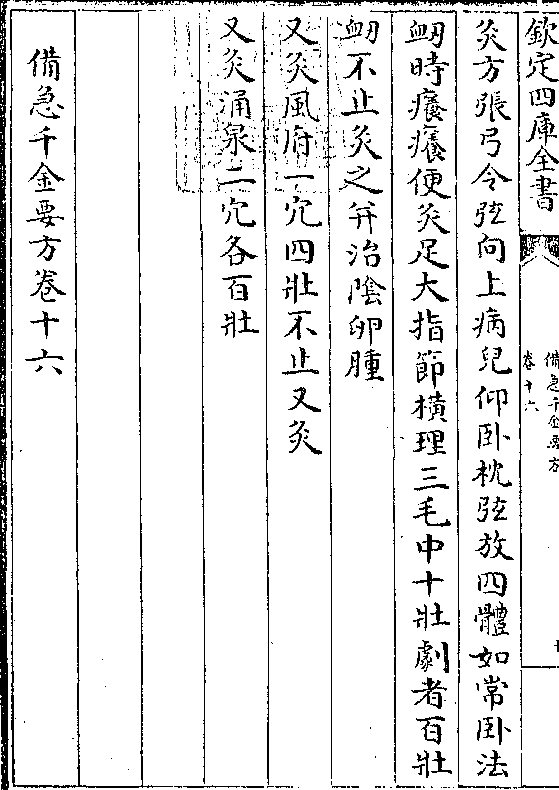 欽定四庫全書
備急千金要方
卷十六
灸方張弓令弦向上病兒仰卧枕弦放四體如常卧法
衄時癢癢便灸足大指節橫理三毛中十壯劇者百壯
衄不止灸之并治陰卵腫
又灸風府一穴四壯不止又灸
又灸涌泉二穴各百壯
備急千金要方卷十六